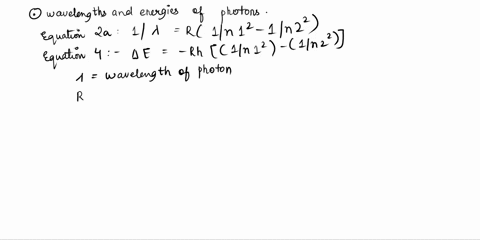 ⊙ wavelengths and energies of photons.
Equation 2a: 1/λ = R(1/n1²-1/n2²)
Equation 4:- ΔE = -Rh[(1/n1²)-(1/n2²)]
λ = wavelength of photon
R